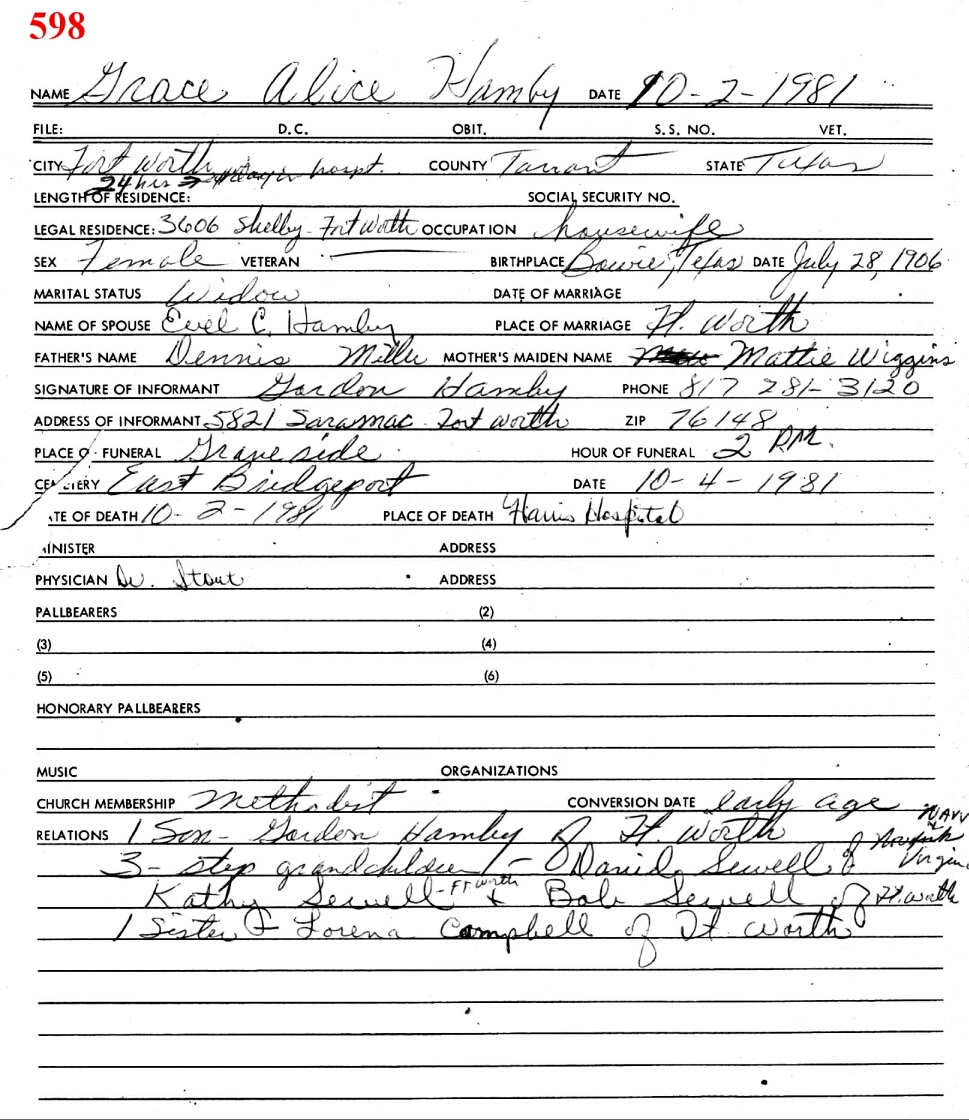 598
NAME Grace Alice Hamby DATE 10-2-1981
FILE: D.C. OBIT. S.S. NO. VET.
CITY Fort Worth hospt. COUNTY Tarrant STATE Texas
24 hrs
LENGTH OF RESIDENCE: SOCIAL SECURITY NO.
LEGAL RESIDENCE: 3606 Shelby - Fort Worth OCCUPATION housewife
SEX Female VETERAN BIRTHPLACE Bowie, Texas DATE July 28, 1906
MARITAL STATUS Widow DATE OF MARRIAGE
NAME OF SPOUSE Evel C. Hamby PLACE OF MARRIAGE Ft. Worth
FATHER'S NAME Dennis Miller MOTHER'S MAIDEN NAME Mattie Wiggins
SIGNATURE OF INFORMANT Gordon Hamby PHONE 817 281-3120
ADDRESS OF INFORMANT 5821 Saramac Fort Worth ZIP 76148
PLACE O- FUNERAL Graveside HOUR OF FUNERAL 2 P.M.
CEMETERY East Bridgeport DATE 10-4-1981
ATE OF DEATH 10-2-1981 PLACE OF DEATH Harris Hospital
MINISTER ADDRESS
PHYSICIAN Dr. Stout ADDRESS
PALLBEARERS (2)
(3) (4)
(5) (6)
HONORARY PALLBEARERS
MUSIC ORGANIZATIONS
CHURCH MEMBERSHIP Methodist CONVERSION DATE early age
RELATIONS 1 Son - Gordon Hamby of Ft. Worth NAVY
3 - step grandchildren - Daniel Sewell of Norfolk Virginia
Kathy Sewell - Ft Worth & Bob Sewell of Ft. Worth
1 Sister - Lorena Campbell of Ft. Worth